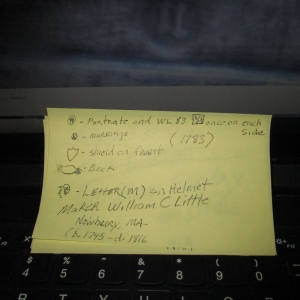 - Portrate and WL 83 once on each
Side
- markings (1783)
- shield on front
- Back
- Letter (M) on Helmet
Maker William C Little
Newbury, MA-
(b. 1745 - d. 1816
$ % & * ( )
4 5 7 8 9 0
R T Y U I O P